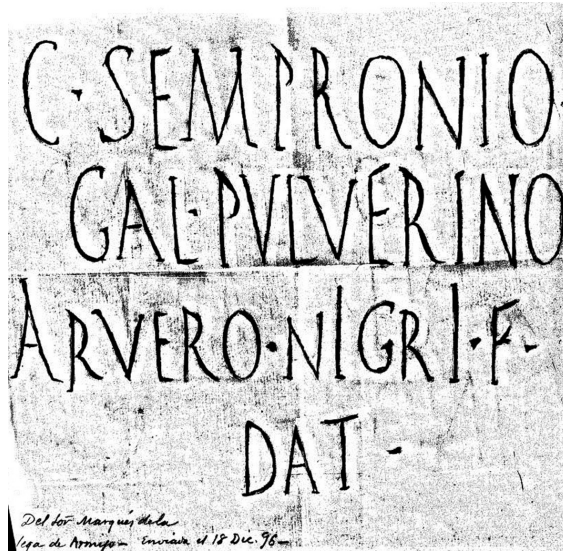 C · SEMPRONIO ·
GAL · PVLVERINO
ARVERO · NIGRI · F ·
DAT ·
Del Sor Marqués de la
Vega de Armijo - enviada el 18 Dic. 96 -